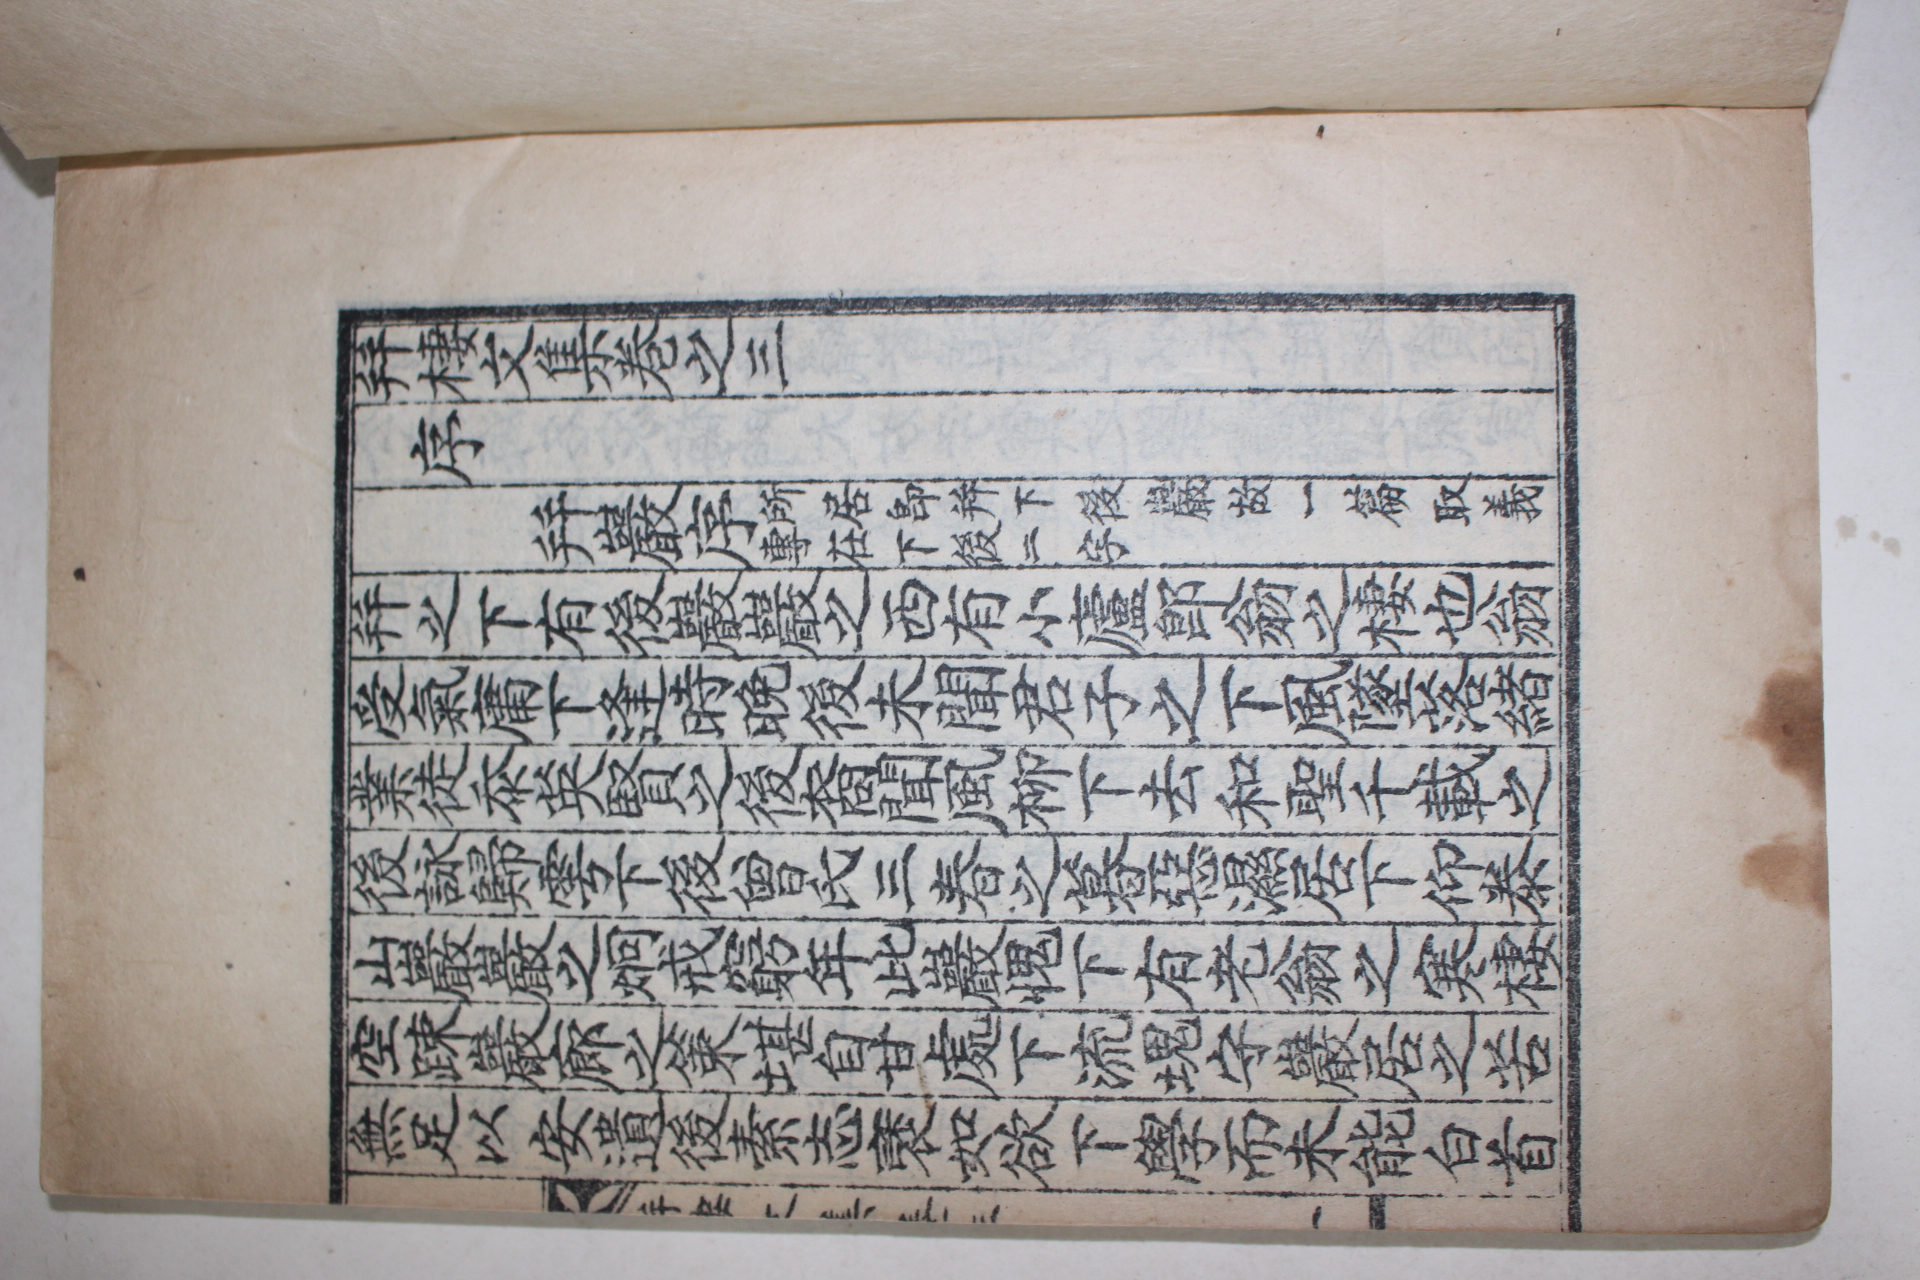 竝棲文集卷之三
序
竝巖序 所居卽竝下後巖故一篇取義
專在下後二字
竝之下有後巖巖之西有小廬卽翁之棲也翁
受氣庸下逢時晚後未聞君子之下風墜落緖
業徒忝英賢之後裔聞風柳下去和聖千載之
後詠歸雩下後曾氏三春之暮惡濕居下仰泰
山巖巖之炯戒窮年此巖愧下有老翁之寒棲
空疎巖廊之策堪自甘處下流塊守巖居之苦
無足以安遺後素志褱如欲下學而未能白首